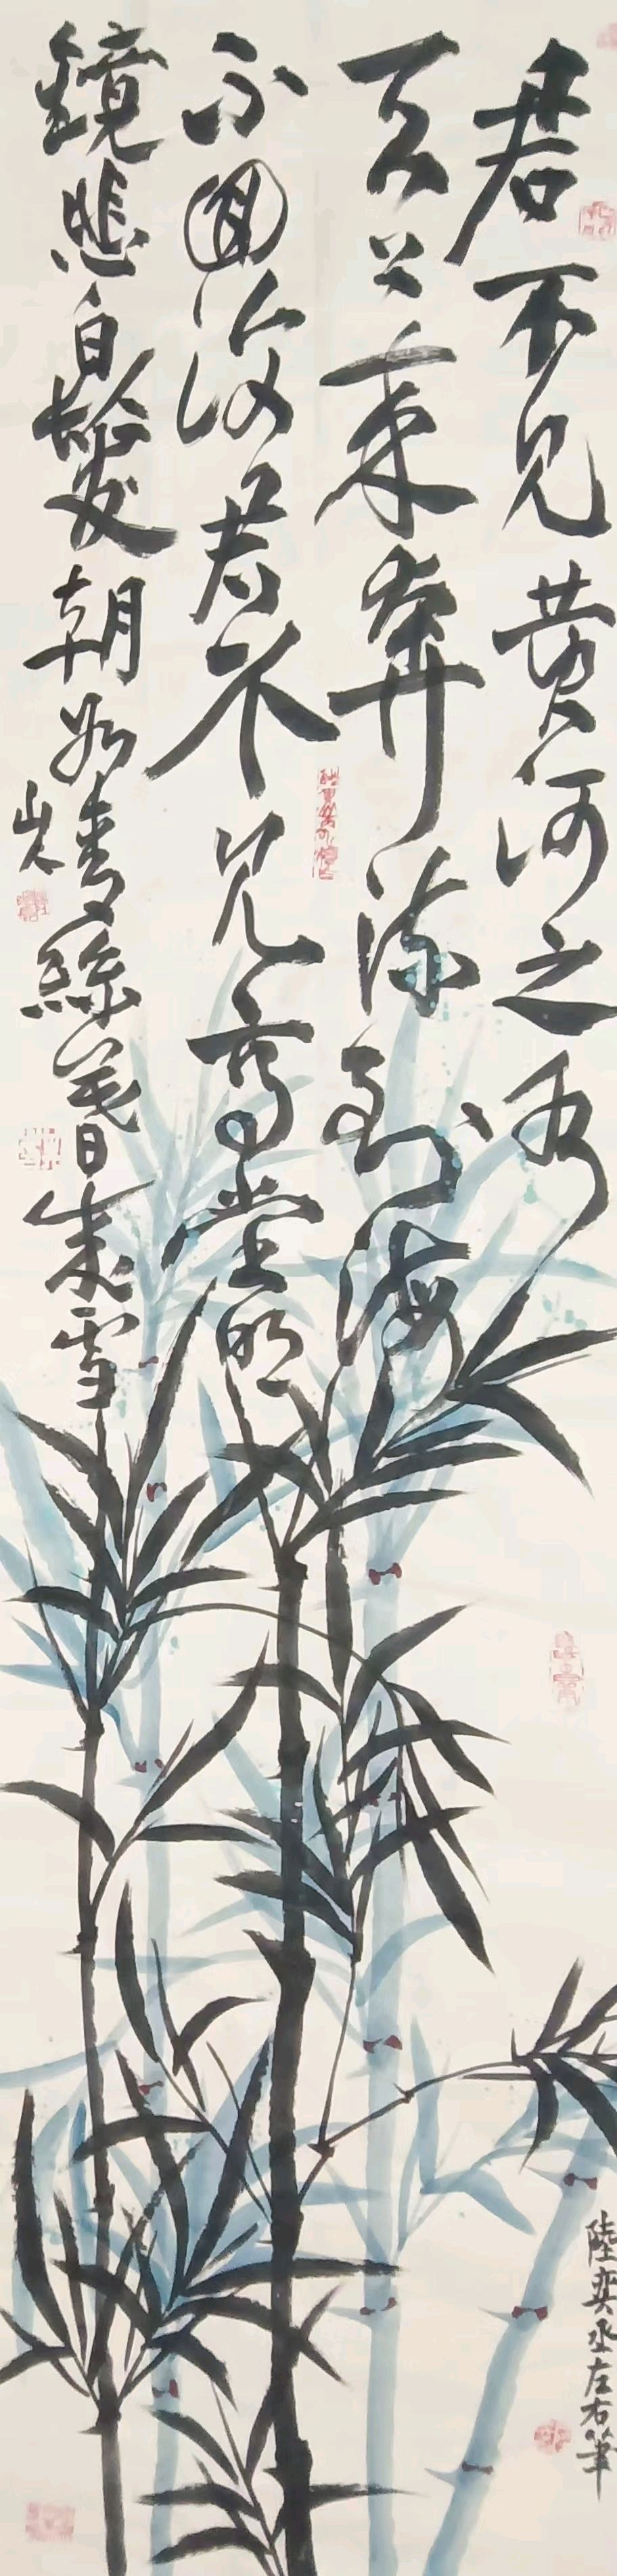 君不見黃河之水
天上來奔流到海
不回復君不見高堂明
鏡悲白髮朝如青絲暮成雪
陸奕丞左右筆